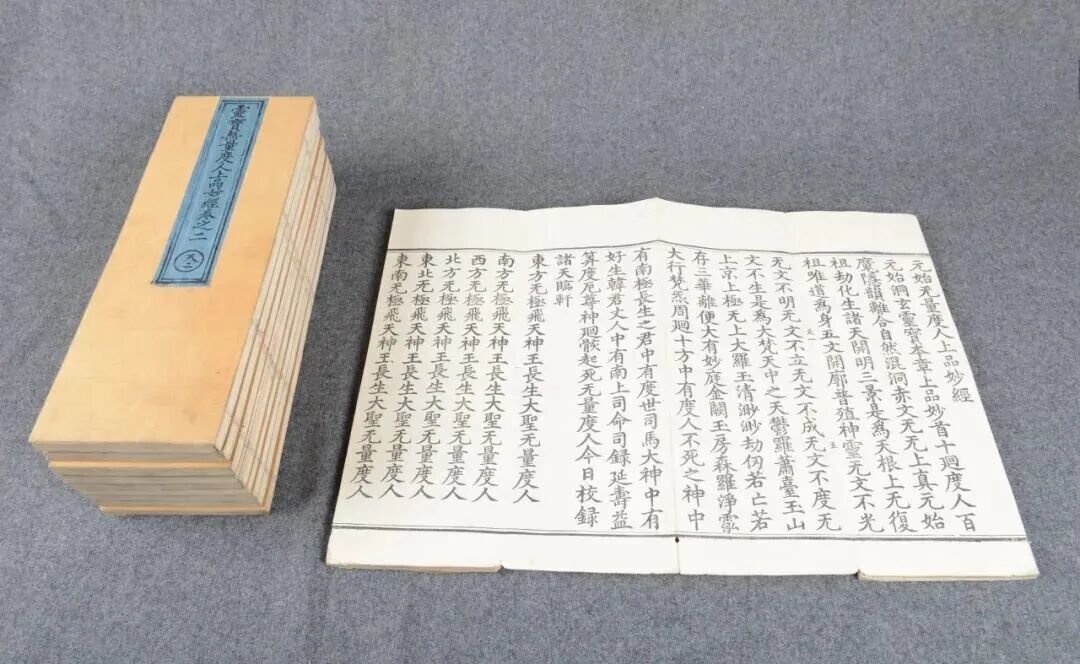 靈寶無量度人上品妙經卷之二
天二
元始无量度人上品妙經
元始洞玄靈寶本章上品妙首十迴度人百
魔隱韻離合自然混洞赤文无无上真元始
祖劫化生諸天開明三景是爲天根上无復
祖唯道爲身五文開廓普殖神靈无文不光
无文不明无文不立无文不成无文不度无
文不生是爲大梵天中之天鬱羅蕭臺玉山
上京上極无上大羅玉清渺渺劫仞若亡若
存三華離便大有妙庭金闕玉房森羅淨霐
大行梵炁周迴十方中有度人不死之神中
有南極長生之君中有度世司馬大神中有
好生韓君丈人中有南上司命司錄延壽益
算度厄尊神迴骸起死无量度人今日校錄
諸天臨軒
東方无極飛天神王長生大聖无量度人
南方无極飛天神王長生大聖无量度人
西方无極飛天神王長生大聖无量度人
北方无極飛天神王長生大聖无量度人
東北无極飛天神王長生大聖无量度人
東南无極飛天神王長生大聖无量度人